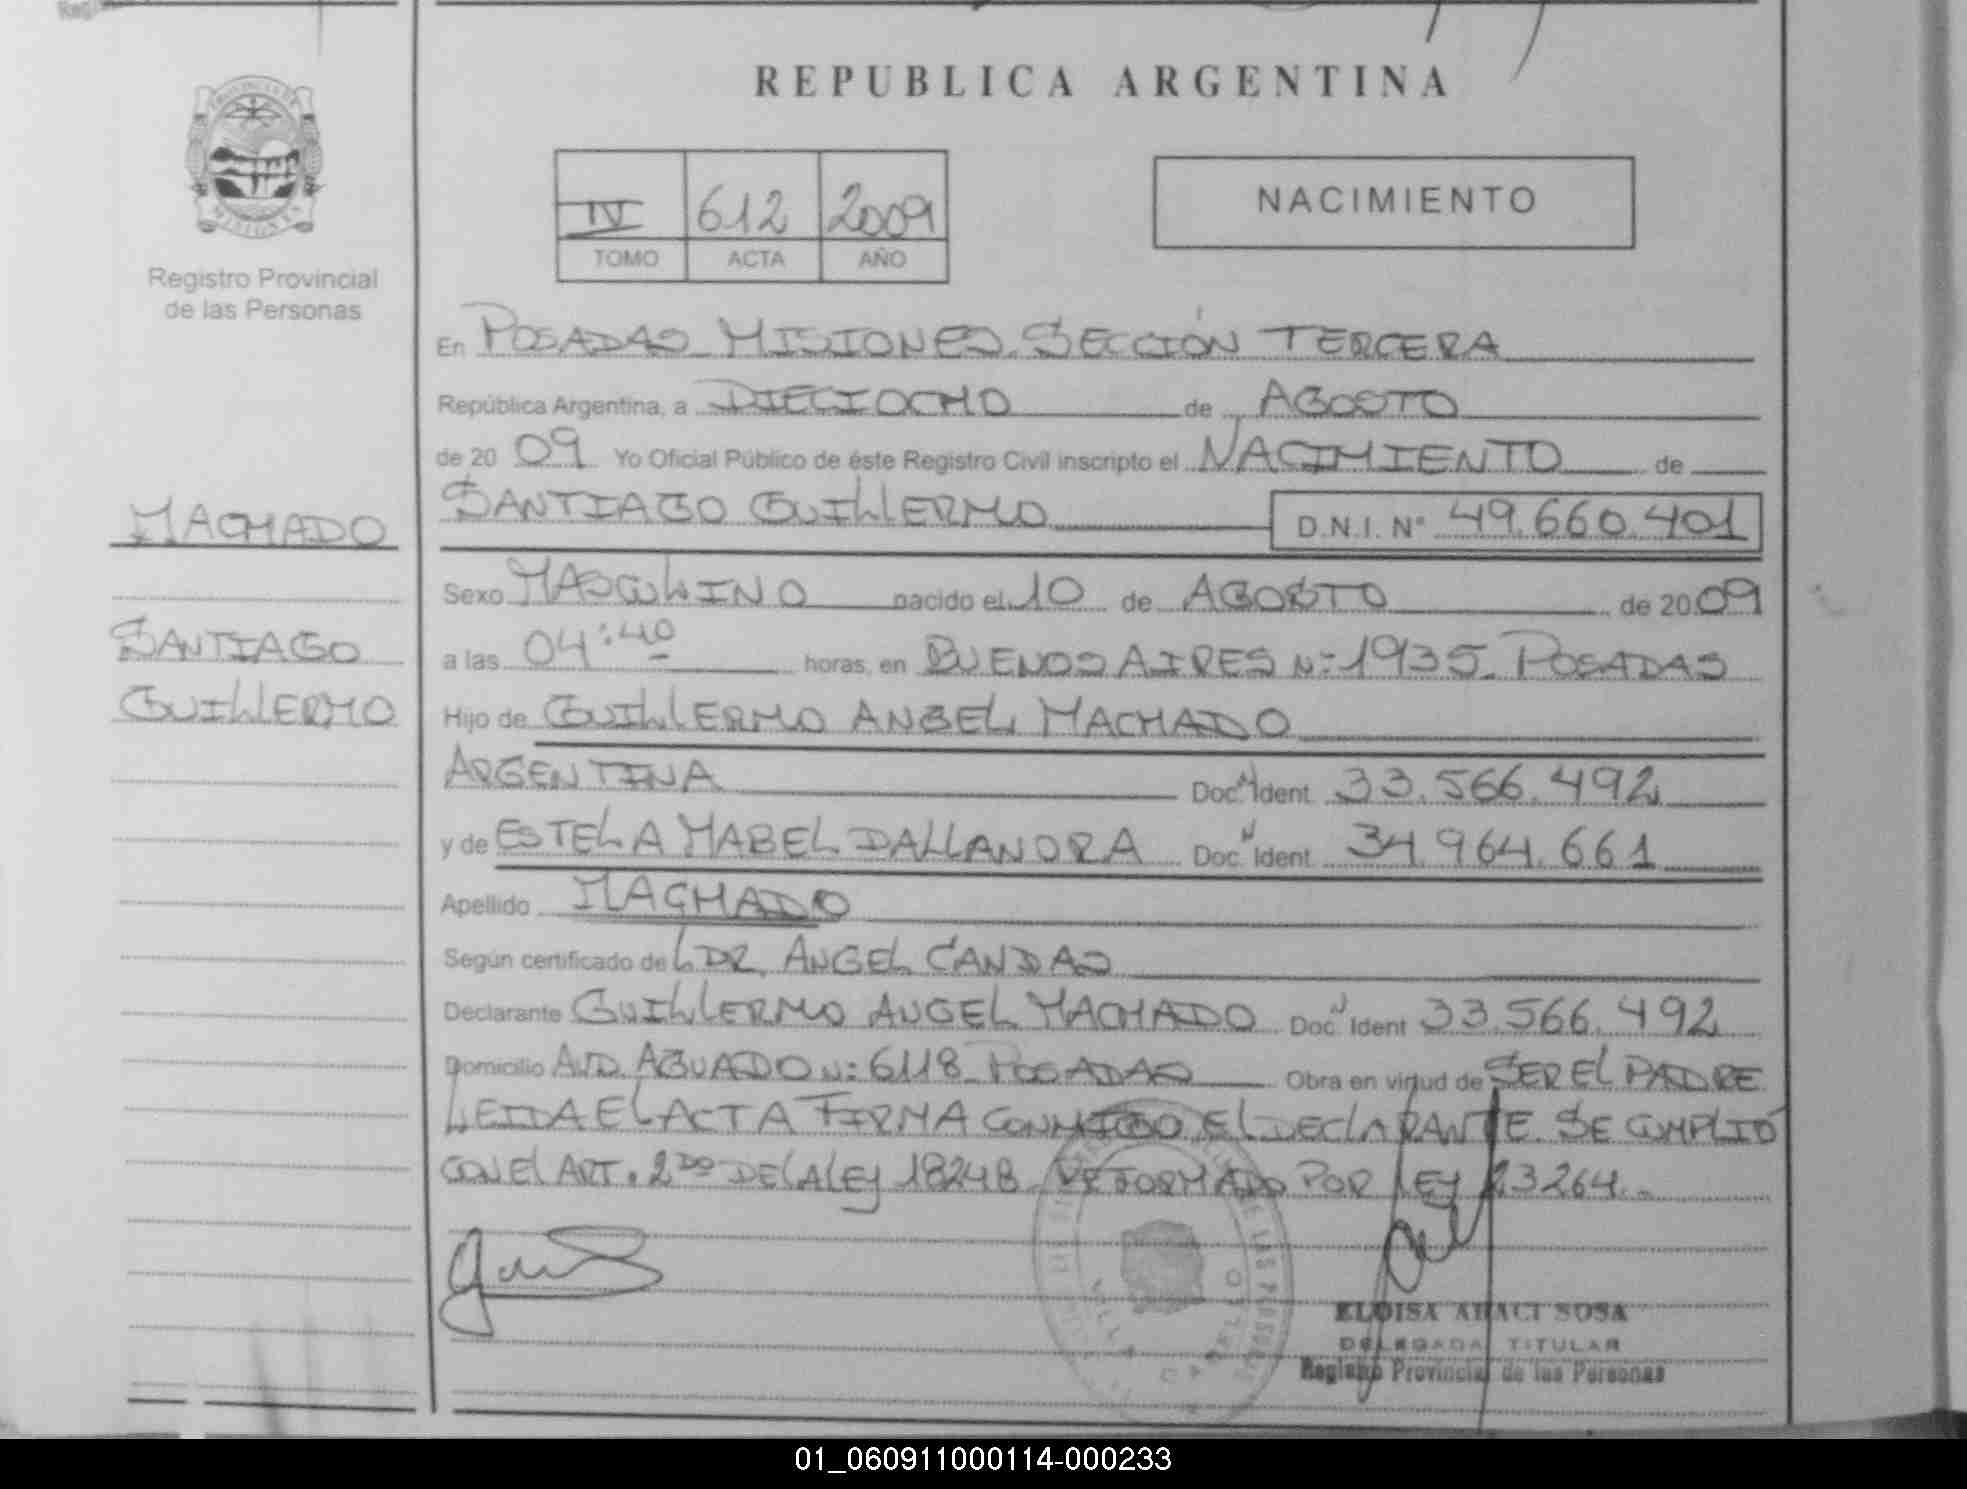 REPUBLICA ARGENTINA
IV 612 2009
TOMO ACTA AÑO
NACIMIENTO
Registro Provincial
de las Personas
En POSADAS MISIONES. SECCIÓN TERCERA
República Argentina, a DIECIOCHO de AGOSTO
de 20 09 Yo Oficial Público de éste Registro Civil inscripto el NACIMIENTO de
SANTIAGO GUILLERMO D.N.I. N° 49.660.401
MACHADO
SANTIAGO
GUILLERMO
Sexo MASCULINO nacido el 10 de AGOSTO de 20 09
a las 04:40 horas, en BUENOS AIRES N: 1935. POSADAS
Hijo de GUILLERMO ANGEL MACHADO
ARGENTINA Doc. N Ident 33.566.492
y de ESTELA MABEL DALLANORA Doc. N Ident 34.964.661
Apellido MACHADO
Según certificado de L DR. ANGEL CANDAS
Declarante GUILLERMO ANGEL MACHADO Doc. N Ident 33.566.492
Domicilio AVD. AGUADO N: 6118 POSADAS Obra en virtud de SER EL PADRE
LEIDA EL ACTA FIRMA CONMIGO EL DECLARANTE. SE CUMPLIÓ
CON EL ART. 2DO DE LA LEY 18248 REFORMADO POR LEY 23264.
ELOISA ARACI SOSA
DELEGADA TITULAR
Registro Provincial de las Personas
01_060911000114-000233